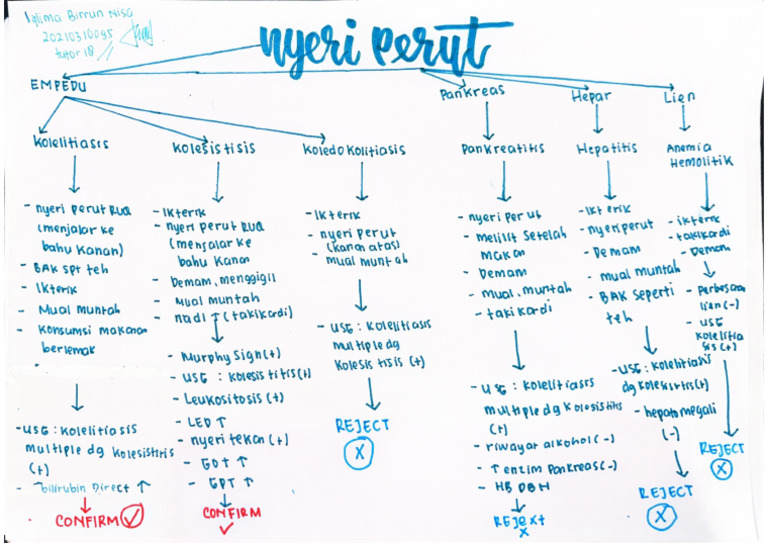 Iqlima Birrun Nisa
20210310095
tutor 18
nyeri perut
EMPEDU
Pankreas
Hepar
Lien
Kolelitiasis
Kolesistisis
Koledokolitiasis
Pankreatitis
Hepatitis
Anemia
Hemolitik
- nyeri perut RUQ
(menjalar ke
bahu Kanan)
- BAK spt teh
- Ikterik
- Mual muntah
- Konsumsi makanan
berlemak
- USG : Kolelitiasis
multiple dg kolesistitis
(+)
- bilirubin Direct ↑
CONFIRM ✓
- Ikterik
- nyeri perut RUQ
(menjalar ke
bahu Kanan
- Demam, menggigil
- Mual muntah
- nadi ↑ (takikardi)
- Murphy Sign (+)
- USG : kolesistitis (+)
- Leukositosis (+)
- LED ↑
- nyeri tekan (+)
- GOT ↑
- GPT ↑
CONFIRM
✓
- Ikterik
- nyeri perut
(kanan atas)
- mual muntah
- USG : Kolelitiasis
multiple dg
Kolesistisis (+)
REJECT
X
- nyeri perut
- melilit setelah
makan
- Demam
- mual, muntah
- takikardi
- USG : kolelitiasis
multiple dg kolosistitis
(+)
- riwayat alkohol (-)
- ↑ enzim Pankreas (-)
- HB DBN
REJEXt
X
- Ikterik
- nyeri perut
- Demam
- mual muntah
- BAK seperti
teh
- USG : kolelitiasis
dg kolesistitis (+)
- hepatomegali
(-)
REJECT
X
- ikterik
- takikardi
- Demam
- perbesaran
lien (-)
- USG
kolelitia
sis (+)
REJECT
X